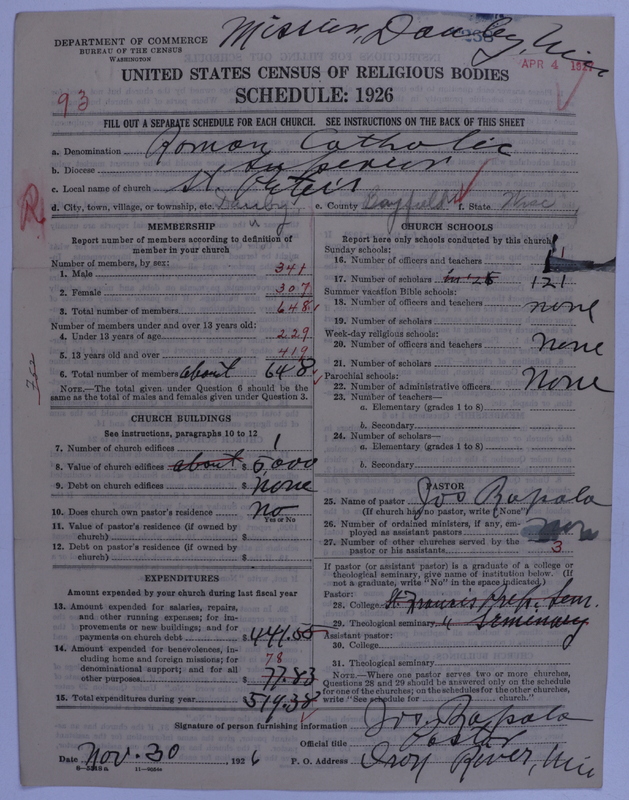 Mission, Danby, Wis
DEPARTMENT OF COMMERCE
BUREAU OF THE CENSUS
WASHINGTON
APR 4
UNITED STATES CENSUS OF RELIGIOUS BODIES
SCHEDULE: 1926
93
FILL OUT A SEPARATE SCHEDULE FOR EACH CHURCH. SEE INSTRUCTIONS ON THE BACK OF THIS SHEET
a. Denomination Roman Catholic
b. Diocese Superior
c. Local name of church St. Peter's
d. City, town, village, or township, etc. Danby e. County Bayfield f. State Wisc
R
MEMBERSHIP
Report number of members according to definition of
member in your church
Number of members, by sex:
1. Male 341
2. Female 307
3. Total number of members 648
Number of members under and over 13 years old:
4. Under 13 years of age 229
5. 13 years old and over 419
6. Total number of members about 648
NOTE.—The total given under Question 6 should be the
same as the total of males and females given under Question 3.
CHURCH BUILDINGS
See instructions, paragraphs 10 to 12
7. Number of church edifices 1
8. Value of church edifices about $ 5,000
9. Debt on church edifices $ none
10. Does church own pastor's residence? no
Yes or No
11. Value of pastor's residence (if owned by
church) $
12. Debt on pastor's residence (if owned by
church) $
EXPENDITURES
Amount expended by your church during last fiscal year
13. Amount expended for salaries, repairs,
and other running expenses; for im-
provements or new buildings; and for
payments on church debt $ 441.55
14. Amount expended for benevolences, in-
cluding home and foreign missions; for
denominational support; and for all
other purposes $ 77.83
78
15. Total expenditures during year $ 519.38
CHURCH SCHOOLS
Report here only schools conducted by this church
Sunday schools:
16. Number of officers and teachers 1
17. Number of scholars in '25 121
Summer vacation Bible schools:
18. Number of officers and teachers none
19. Number of scholars
Week-day religious schools:
20. Number of officers and teachers none
21. Number of scholars
Parochial schools:
22. Number of administrative officers None
23. Number of teachers—
a. Elementary (grades 1 to 8)
b. Secondary
24. Number of scholars—
a. Elementary (grades 1 to 8)
b. Secondary
PASTOR
25. Name of pastor Jos Rapala
(If church has no pastor, write "None")
26. Number of ordained ministers, if any, em-
ployed as assistant pastors
27. Number of other churches served by the
pastor or his assistants 3
If pastor (or assistant pastor) is a graduate of a college or
theological seminary, give name of institution below. (If
not a graduate, write "No" in the space indicated.)
Pastor:
28. College St. Francis Prep. Sem.
29. Theological seminary " Seminary
Assistant pastor:
30. College
31. Theological seminary
NOTE.—Where one pastor serves two or more churches,
Questions 28 and 29 should be answered only on the schedule
for one of the churches; on the schedules for the other churches,
write "See schedule for church."
Signature of person furnishing information Jos. Rapala
Official title Pastor
Date Nov. 30 1926 P. O. Address Iron River, Wis